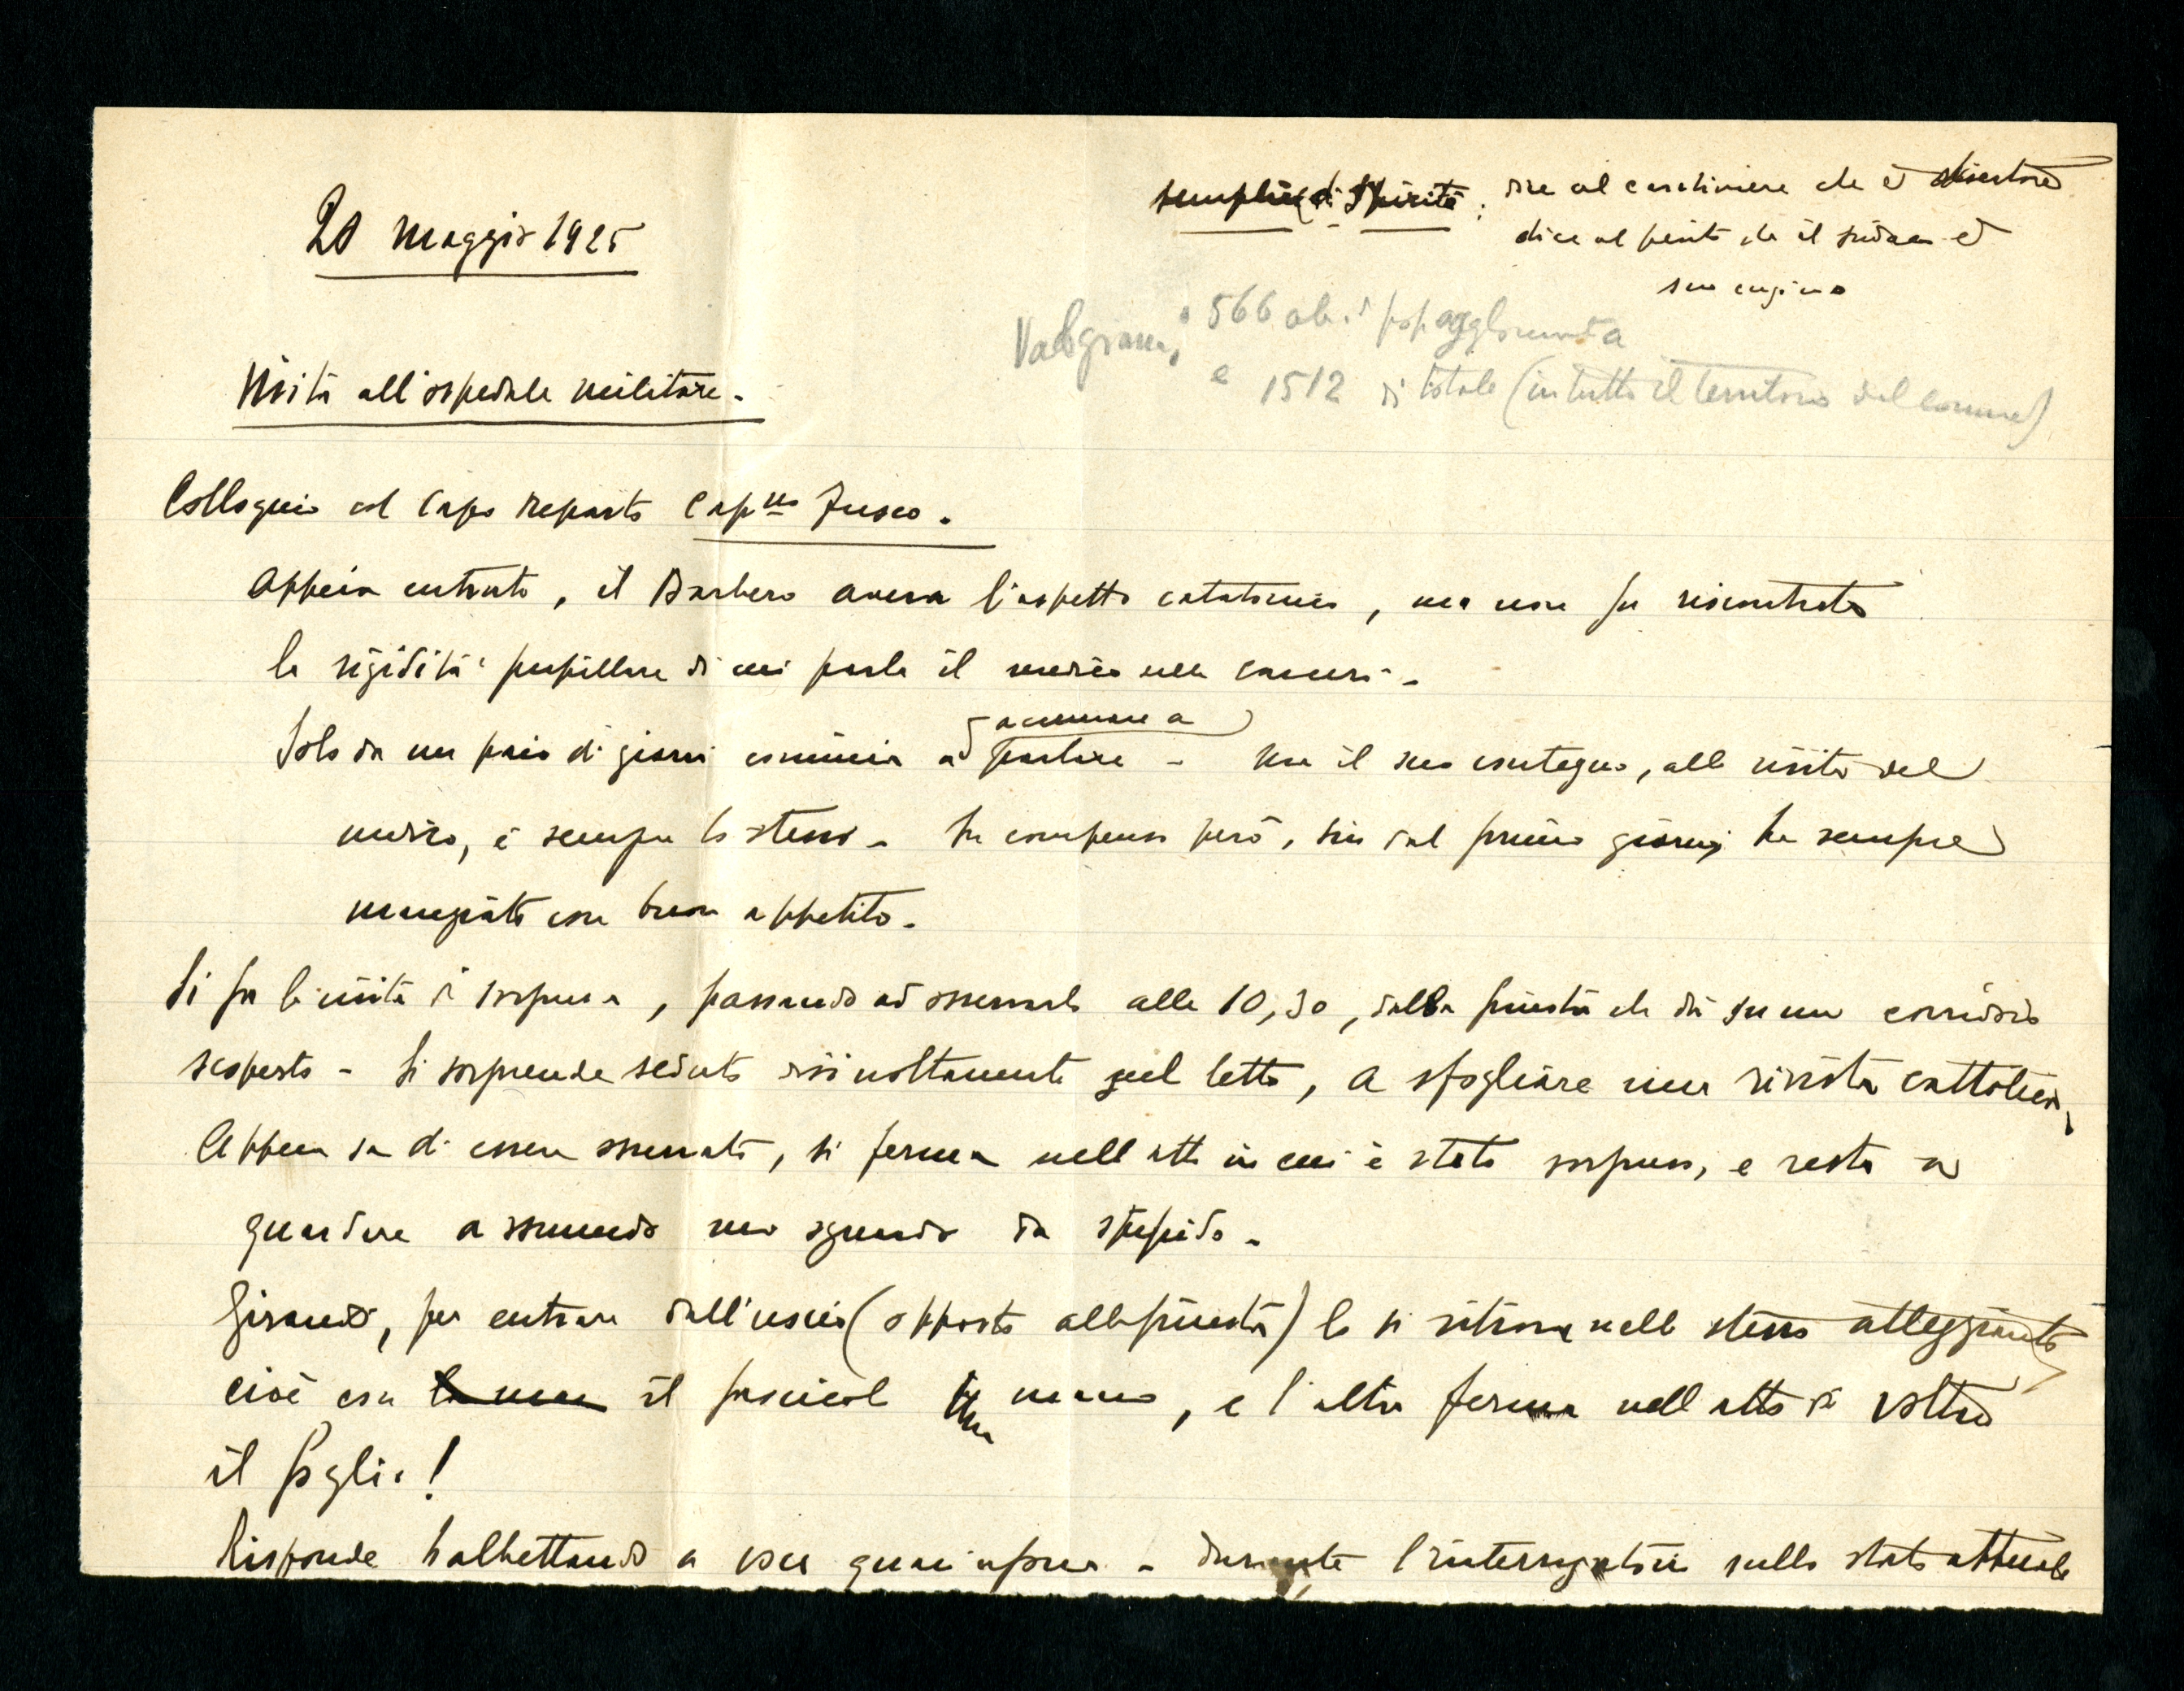 20 Maggio 1925
semplice di spirito; dice al carabiniere che è disertore
dice al perito che il sindaco è
suo cugino
Valgrana, 566 ab. di pop agglomerata
e 1512 di totale (in tutto il territorio del comune)
Visita all'ospedale militare -
Colloquio col Capo Reparto Cap.no Fusco.
Appena entrato, il Barbero aveva l'aspetto catatonico, ma non fu riscontrata
la rigidità pupillare di cui parla il medico delle carceri -
Solo da un paio di giorni comincia ad accennare a parlare - Ma il suo contegno, alla visita del
medico, è sempre lo stesso - In compenso però, sin dal primo giorno, ha sempre
mangiato con buon appetito -
Si fa la visita di sorpresa, passando ad osservarlo alle 10,30, dalla finestra che dà su un corridoio
scoperto - Si sorprende seduto disinvoltamente sul letto, a sfogliare una rivista cattolica,
Appena sa di essere osservato, si ferma nell'atto in cui è stato sorpreso, e resta a
guardare assumendo uno sguardo da stupido -
Girando, per entrare dall'uscio (opposto alla finestra) lo si ritrova nello stesso atteggiamento
cioè con la man il fascicolo in una mano, e l'altra ferma nell'atto di voltare
il foglio!
Risponde balbettando a voce quasi afona - Durante l'interrogatorio sullo stato attuale